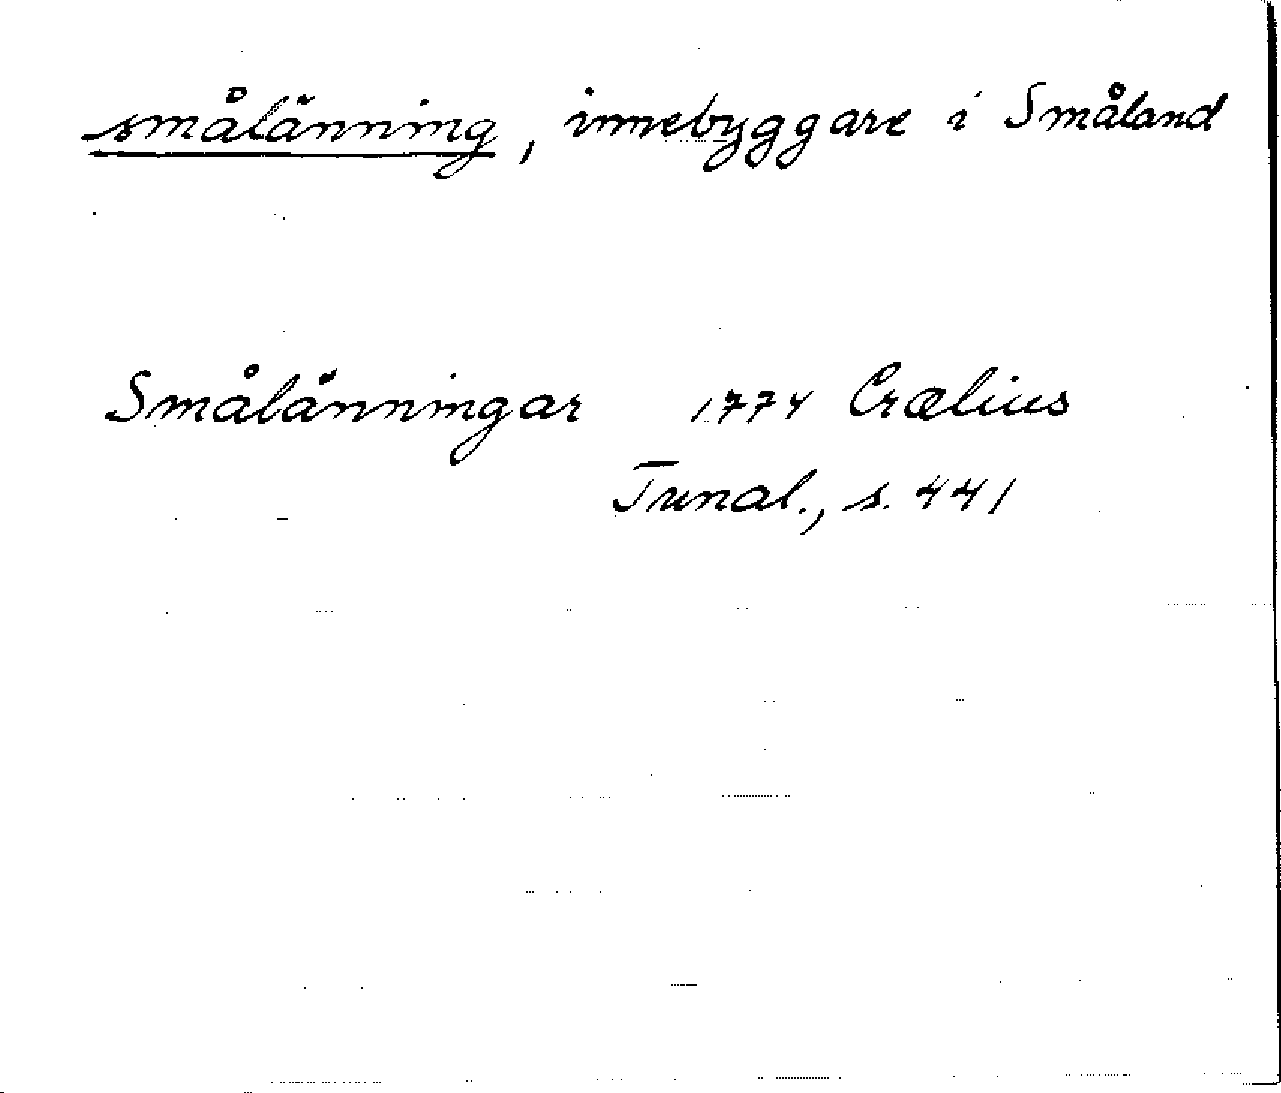 smålänning, innebyggare i Småland
Smålänningar 1774 Crælius
Tunal., s. 441